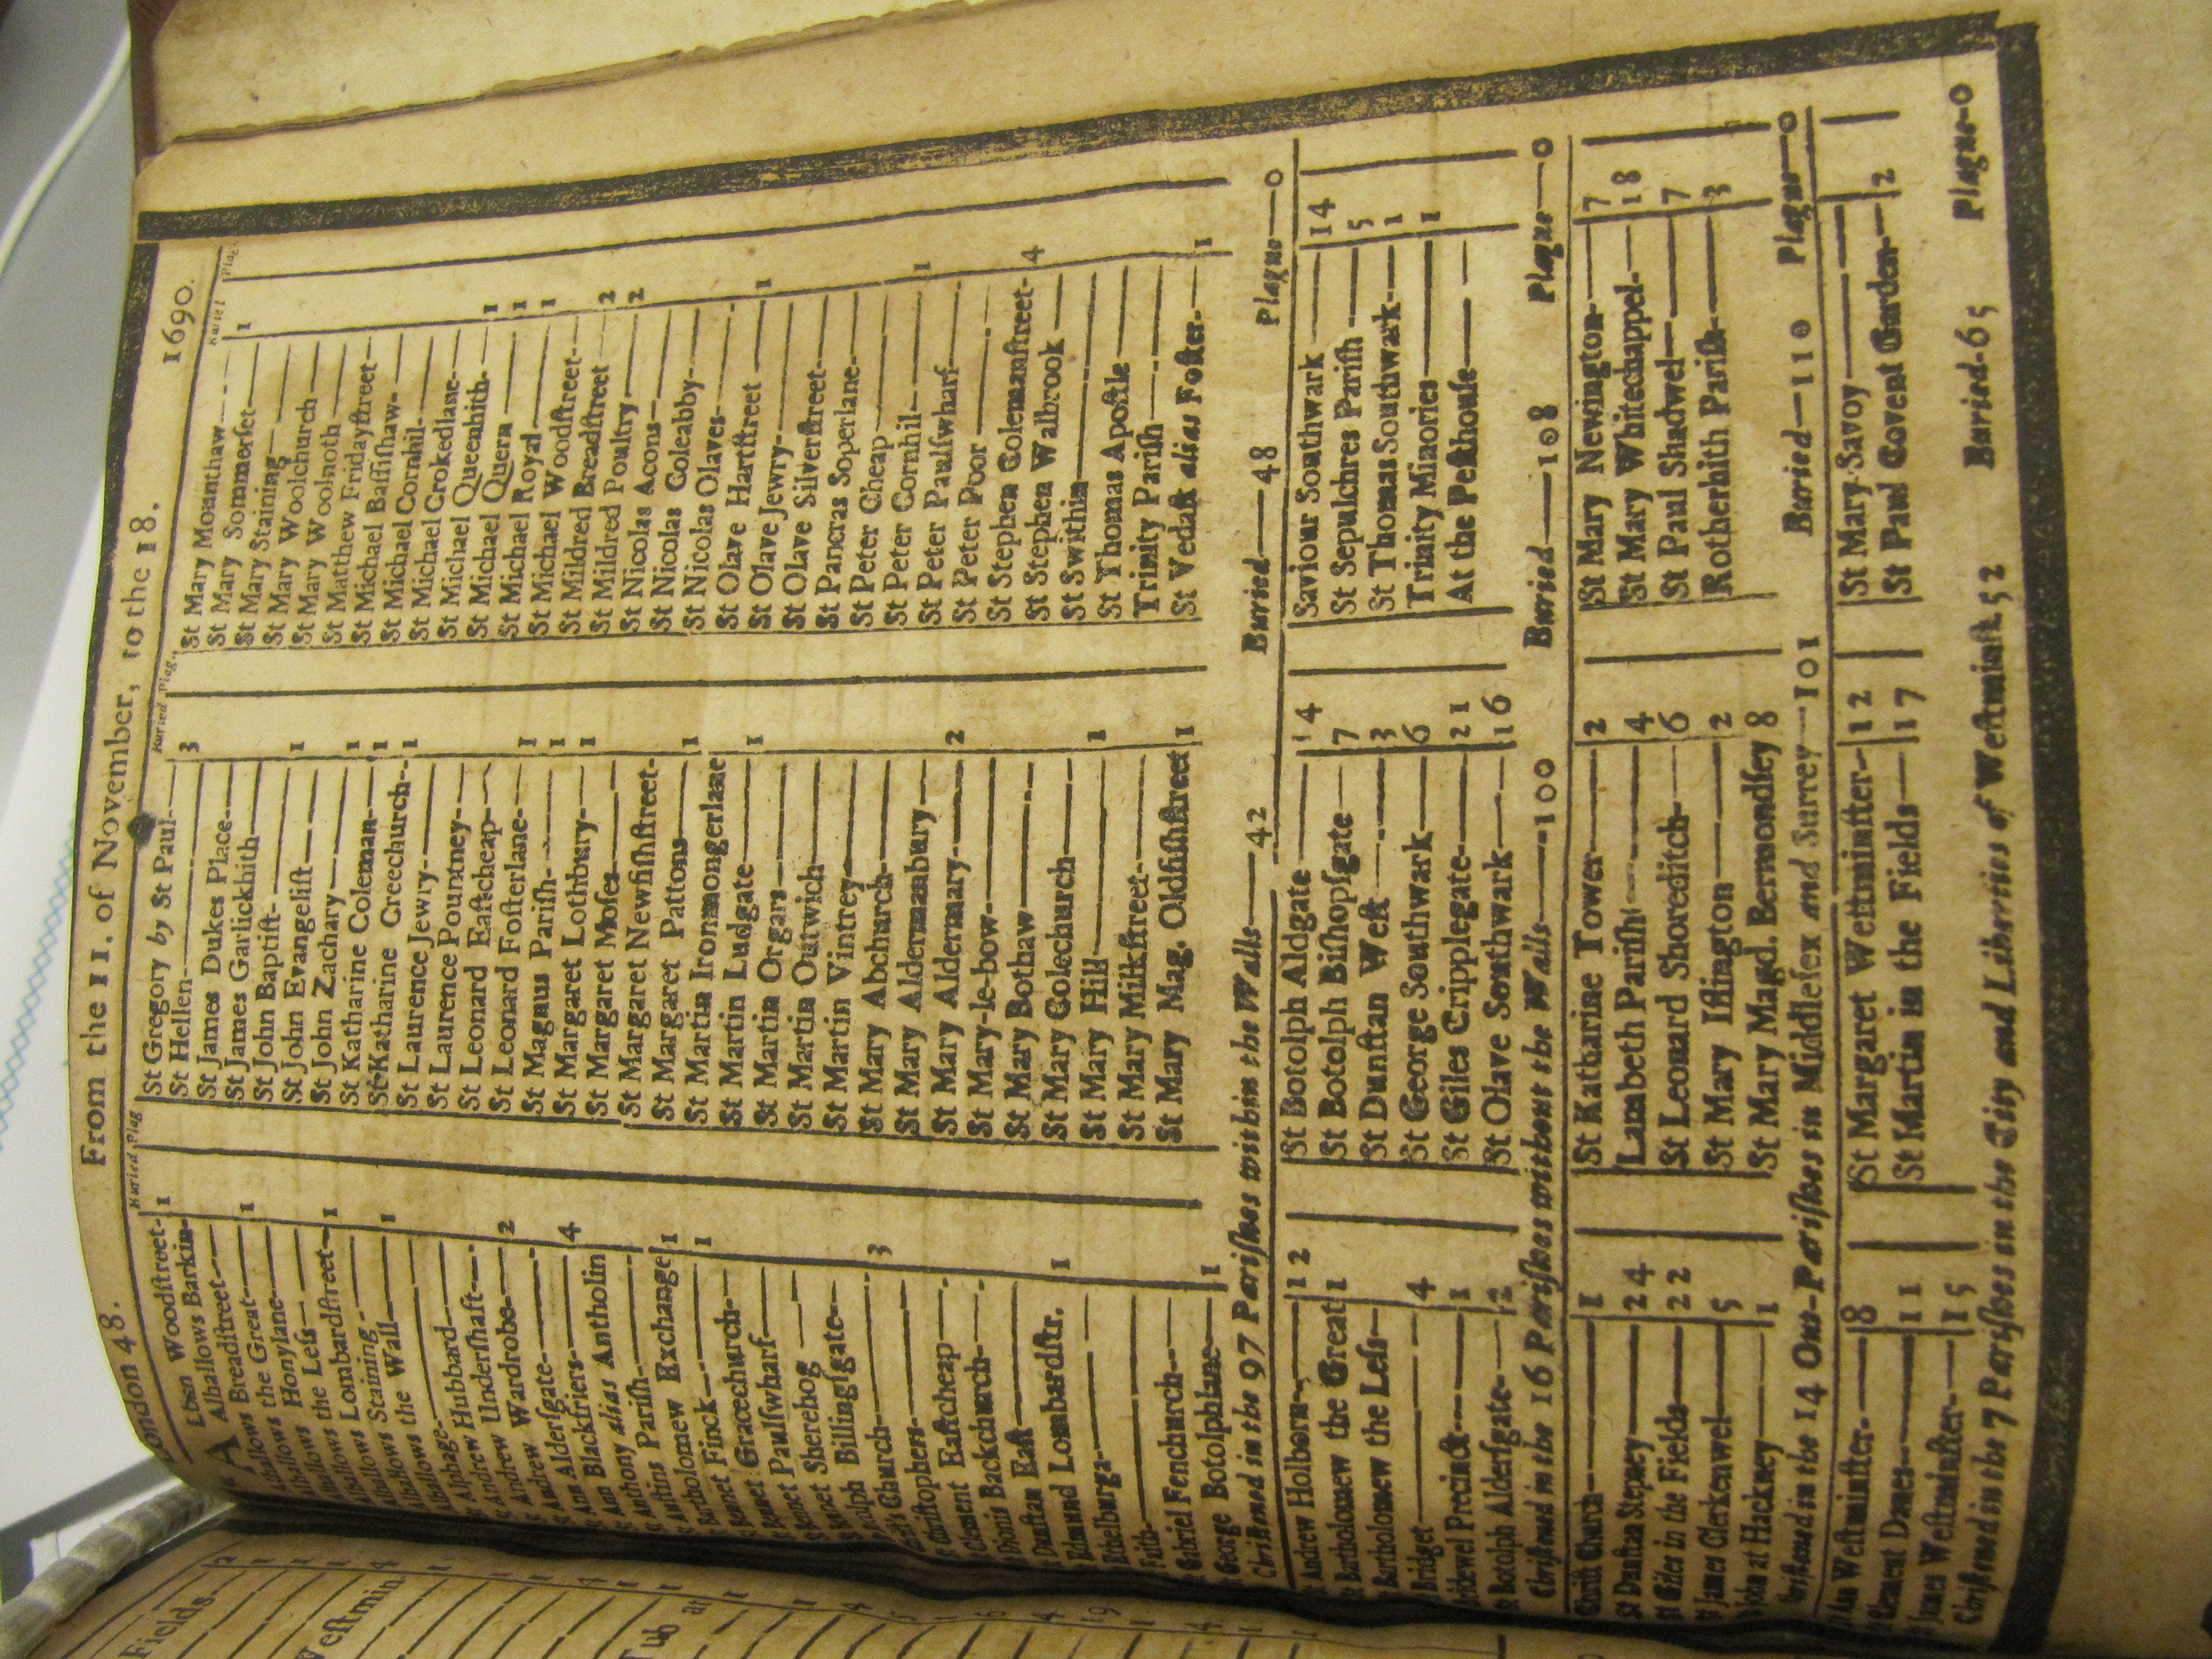 London 48. From the 11. of November, to the 18. 1690.
Buried Plag
Woodstreet- 1
Alhallows Barkin-
Alhallows Breadstreet-
Alhallows the Great- 1
Alhallows Honylane-
Alhallows the Less-
Alhallows Lombardstreet- 1
Alhallows Staining-
Alhallows the Wall- 1
Alphage-
Andrew Hubbard-
Andrew Undershaft-
Andrew Wardrobe- 2
Ann Aldersgate-
Ann Blackfriers- 4
Antholin
Anthony alias
Austins Parish-
Bartholomew Exchange 1
Bennet Finck- 1
Bennet Gracechurch-
Bennet Paulswharf-
Bennet Sherehog
Botolph Billingsgate-
Christs Church- 3
Christophers-
Clement Eastcheap-
Dionis Backchurch-
Dunstan East-
Edmund Lombardstr. 1
Ethelburga-
Faith-
Gabriel Fenchurch-
George Botolphlane- 1
Buried Plag
St Gregory by St Paul- 3
St Hellen-
St James Dukes Place-
St James Garlickhith-
St John Baptist- 1
St John Evangelist-
St John Zachary- 1
St Katharine Coleman- 1
St Katharine Creechurch- 1
St Laurence Jewry-
St Laurence Pountney-
St Leonard Eastcheap-
St Leonard Fosterlane- 1
St Magnus Parish- 1
St Margaret Lothbury- 1
St Margaret Moses-
St Margaret Newfishstreet-
St Margaret Pattons- 1
St Martin Ironmongerlane
St Martin Ludgate- 1
St Martin Orgars-
St Martin Outwich-
St Martin Vintrey-
St Mary Abchurch-
St Mary Aldermanbury-
St Mary Aldermary- 2
St Mary-le-bow-
St Mary Bothaw-
St Mary Colechurch-
St Mary Hill- 1
St Mary Milkstreet-
St Mary Mag. Oldfishstreet 1
Buried Plag
St Mary Mounthaw-
St Mary Sommerset- 1
St Mary Staining-
St Mary Woolchurch-
St Mary Woolnoth-
St Matthew Fridaystreet-
St Michael Bassishaw-
St Michael Cornhil-
St Michael Crokedlane-
St Michael Queenhith- 1
St Michael Quern- 1
St Michael Royal- 1
St Michael Woodstreet-
St Mildred Breadstreet 2
St Mildred Poultry- 2
St Nicolas Acons-
St Nicolas Coleabby-
St Nicolas Olaves-
St Olave Hartstreet- 1
St Olave Jewry-
St Olave Silverstreet-
St Pancras Soperlane-
St Peter Cheap-
St Peter Cornhil- 1
St Peter Paulswharf-
St Peter Poor-
St Stephen Colemanstreet- 4
St Stephen Walbrook-
St Swithin-
St Thomas Apostle-
Trinity Parish-
St Vedast alias Foster- 1
Christned in the 97 Parishes within the Walls—42 Buried—48 Plague—0
St Andrew Holborn- 12
St Bartholomew the Great 1
St Bartholomew the Less-
Bridget- 4
Bridewel Precinct- 1
St Botolph Aldersgate- 2
St Botolph Aldgate- 14
St Botolph Bishopsgate- 7
St Dunstan West- 3
St George Southwark- 6
St Giles Cripplegate- 21
St Olave Southwark- 16
Saviour Southwark- 14
St Sepulchres Parish- 5
St Thomas Southwark- 1
Trinity Minories- 1
At the Pesthouse-
Christned in the 16 Parishes without the Walls—100 Buried—108 Plague—0
Christ Church- 1
St Dunstan Stepney- 24
St Giles in the Fields- 22
St James Clerkenwel- 5
John at Hackney- 1
St Katharine Tower- 2
Lambeth Parish- 4
St Leonard Shoreditch- 6
St Mary Islington- 2
St Mary Magd. Bermondsey 8
St Mary Newington- 7
St Mary Whitechappel- 18
St Paul Shadwel- 7
Rotherhith Parish- 3
Christned in the 14 Out-Parishes in Middlesex and Surrey—101 Buried—110 Plague—0
Westminster- 8
Clement Danes- 11
St James Westminster- 15
St Margaret Westminster- 12
St Martin in the Fields- 17
St Mary Savoy-
St Paul Covent Garden- 2
Christned in the 7 Parishes in the City and Liberties of Westminst. 52 Buried-65 Plague-0